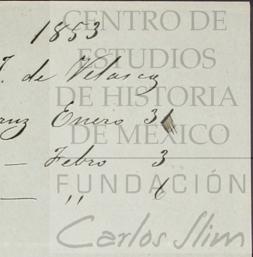 1853
CENTRO DE
ESTUDIOS
J. de Velasco
DE HISTORIA
ruz Enero 31
DE MÉXICO
— Febro 3
FUNDACIÓN
— " 6
Carlos Slim